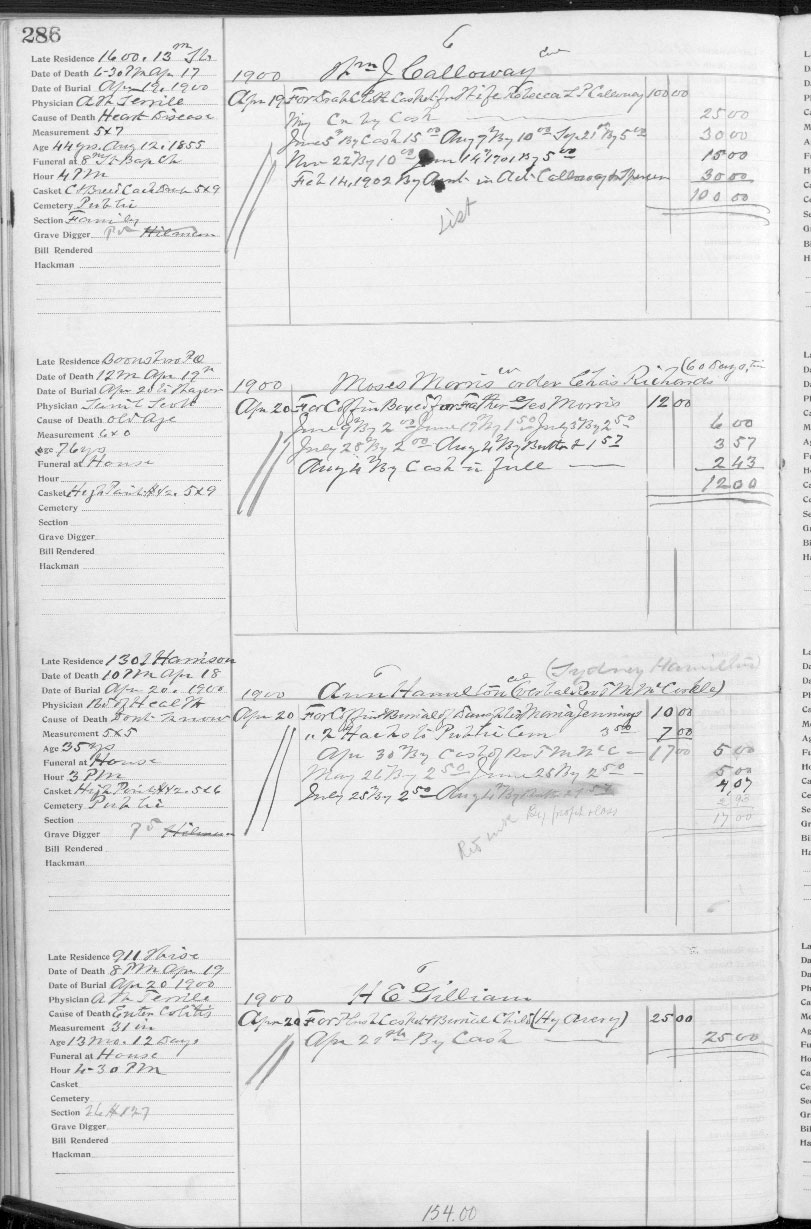 286
Late Residence 1600. 13th St
Date of Death 6-30 PM Apr 17
Date of Burial Apr 19. 1900
Physician A W Terrile
Cause of Death Heart Disease
Measurement 5x7
Age 44 yrs. Aug 12. 1855
Funeral at 8th St Bap Ch
Hour 4 PM
Casket 5x9
Cemetery Public
Section Family
Grave Digger Hileman
Bill Rendered
Hackman
6
1900 Wm J Calloway
Apr 19 For Casket for Wife Rebecca Calloway 100 00
By Cash 25 00
June 5th By Cash 15 00 Aug 7th By 10 00 Sep 21st By 5 00 30 00
Nov 22nd By 10 00 14th 1901 By 5 00 15 00
Feb 14, 1902 By Amt in Act Calloway 30 00
100 00
List
Late Residence Boonsboro Rd
Date of Death 12 M Apr 19th
Date of Burial Apr 20th
Physician Saml
Cause of Death Old Age
Measurement 6x0
Age 76 yrs
Funeral at House
Hour
Casket High Point 5x9
Cemetery
Section
Grave Digger
Bill Rendered
Hackman
(60 Days
1900 Moses Morris order Chas Richards
Apr 20 For Coffin Boxed for Father Geo Morris 12 00
June 9th By 2 00 June 19th By 1 50 July 3rd By 2 50 6 00
July 28th By 2 00 Aug 4th By 1 57 3 57
Aug 4th By Cash in full 2 43
12 00
Late Residence 1301 Harrison
Date of Death 10 PM Apr 18
Date of Burial Apr 20. 1900
Physician Bd of Health
Cause of Death Dont Know
Measurement 5x5
Age 35 ys
Funeral at House
Hour 3 PM
Casket High Point 5x6
Cemetery Public
Section
Grave Digger Hileman
Bill Rendered
Hackman
(Sydney Hamilton)
1900 Ann Hamilton
Apr 20 For Coffin & Burial of Daughter Maria Jennings 10 00
" 2 Hacks to Public Cem 3 50 7 00
Apr 30th By Cash of Rev T M McC 17 00 5 00
May 26 By 2 50 June 28 By 2 50 5 00
July 28th By 2 50 Aug 4th By 4,07
2 93
By profit & loss 17 00
Late Residence 911 Wise
Date of Death 8 PM Apr 19
Date of Burial Apr 20 1900
Physician A W Terrile
Cause of Death Enter Colitis
Measurement 31 in
Age 13 Mo. 12 Days
Funeral at House
Hour 4-30 PM
Casket
Cemetery
Section 127
Grave Digger
Bill Rendered
Hackman
6
1900 H E Gilliam
Apr 20 For Plush Casket & Burial Child (Hy Avery) 25 00
Apr 20th By Cash 25 00
154.00